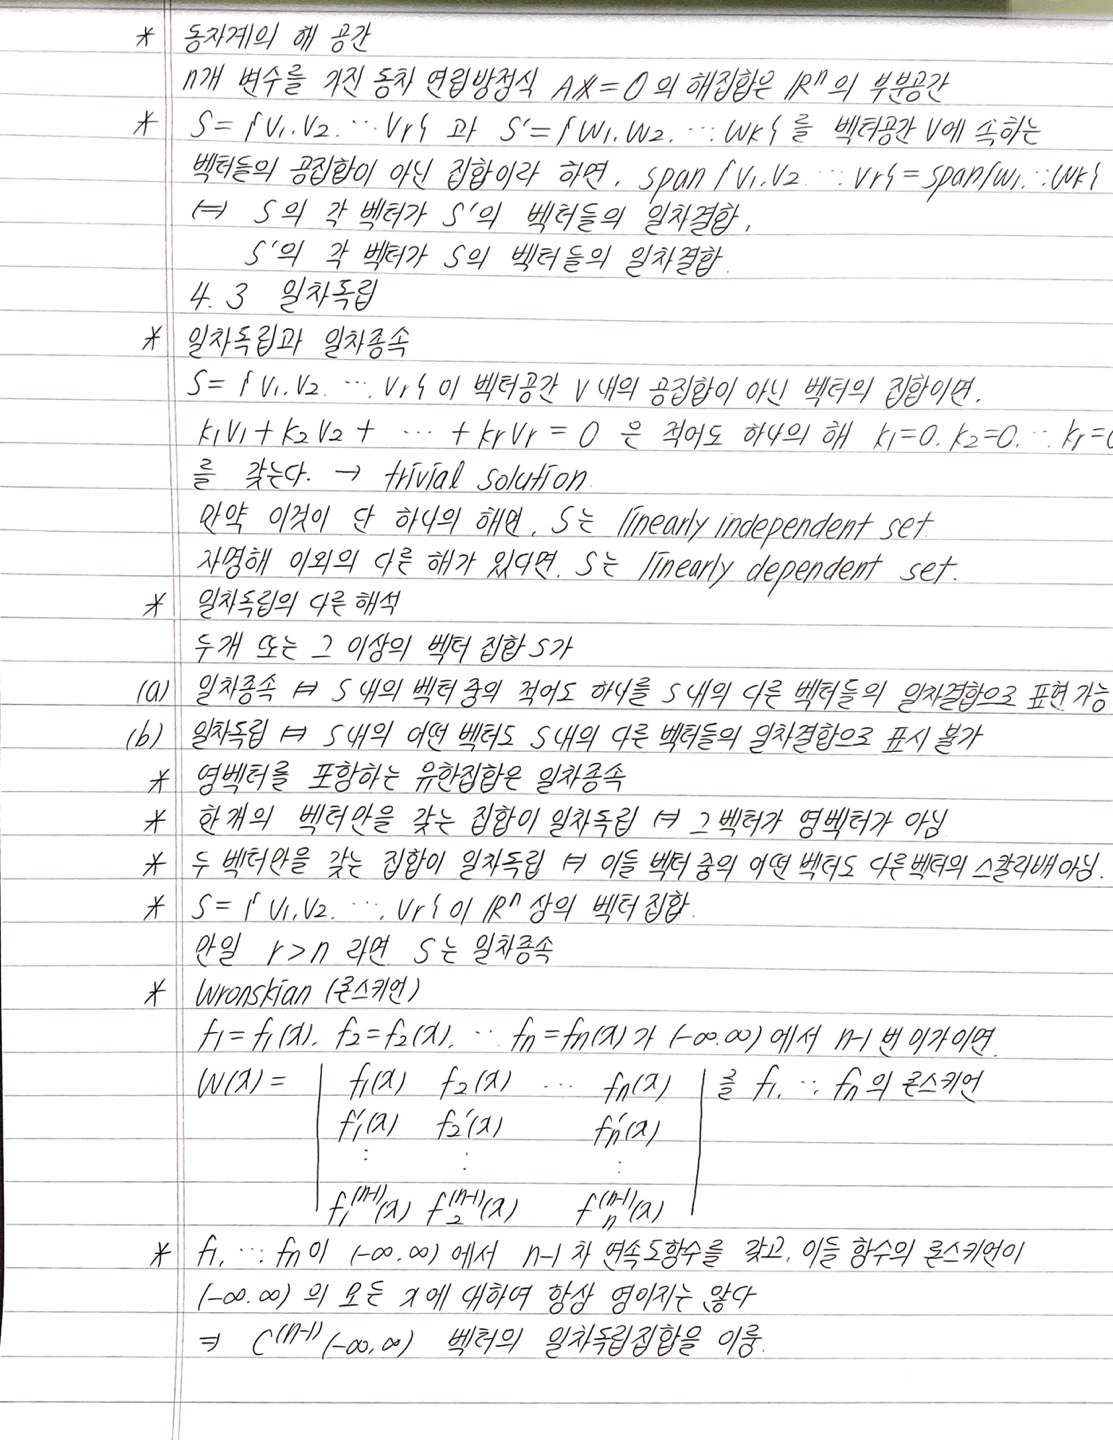 * 동차계의 해 공간
n개 변수를 가진 동차 연립방정식 Ax=0의 해집합은 ℝⁿ의 부분공간
* S={v₁.v₂. ⋯ vr}과 S'={w₁.w₂. ⋯wk}를 벡터공간 V에 속하는
벡터들의 공집합이 아닌 집합이라 하면, span{v₁.v₂ ⋯ vr}=span{w₁.⋯wk}
⇔ S의 각 벡터가 S'의 벡터들의 일차결합,
S'의 각 벡터가 S의 벡터들의 일차결합.
4.3 일차독립
* 일차독립과 일차종속
S={v₁.v₂. ⋯ vr}이 벡터공간 V내의 공집합이 아닌 벡터의 집합이면,
k₁v₁+k₂v₂+ ⋯ +krvr=0 은 적어도 하나의 해 k₁=0.k₂=0.⋯kr=0
를 갖는다. → trivial solution
만약 이것이 단 하나의 해면, S는 linearly independent set
자명해 이외의 다른 해가 있다면, S는 linearly dependent set.
* 일차독립의 다른 해석
두개 또는 그 이상의 벡터 집합 S가
(a) 일차종속 ⇔ S내의 벡터 중의 적어도 하나를 S내의 다른 벡터들의 일차결합으로 표현 가능
(b) 일차독립 ⇔ S내의 어떤 벡터도 S내의 다른 벡터들의 일차결합으로 표시 불가
* 영벡터를 포함하는 유한집합은 일차종속
* 한개의 벡터만을 갖는 집합이 일차독립 ⇔ 그 벡터가 영벡터가 아님
* 두 벡터만을 갖는 집합이 일차독립 ⇔ 이들 벡터 중의 어떤 벡터도 다른벡터의 스칼라배 아님.
* S={v₁.v₂. ⋯, vr}이 ℝⁿ상의 벡터 집합.
만일 r>n 라면 S는 일차종속
* Wronskian (론스키언)
f₁=f₁(x). f₂=f₂(x). ⋯ fn=fn(x)가 (-∞.∞)에서 n-1번 미가이면
W(x)= | f₁(x) f₂(x) ⋯ fn(x) | 를 f₁, ⋯, fn의 론스키언
f₁'(x) f₂'(x) fn'(x)
⋮ ⋮ ⋮
f₁⁽ⁿ⁻¹⁾(x) f₂⁽ⁿ⁻¹⁾(x) fn⁽ⁿ⁻¹⁾(x)
* f₁, ⋯ fn이 (-∞.∞)에서 n-1차 연속도함수를 갖고, 이들 함수의 론스키언이
(-∞.∞)의 모든 x에 대하여 항상 영이지는 않다
⇒ C⁽ⁿ⁻¹⁾(-∞,∞) 벡터의 일차독립집합을 이룸.